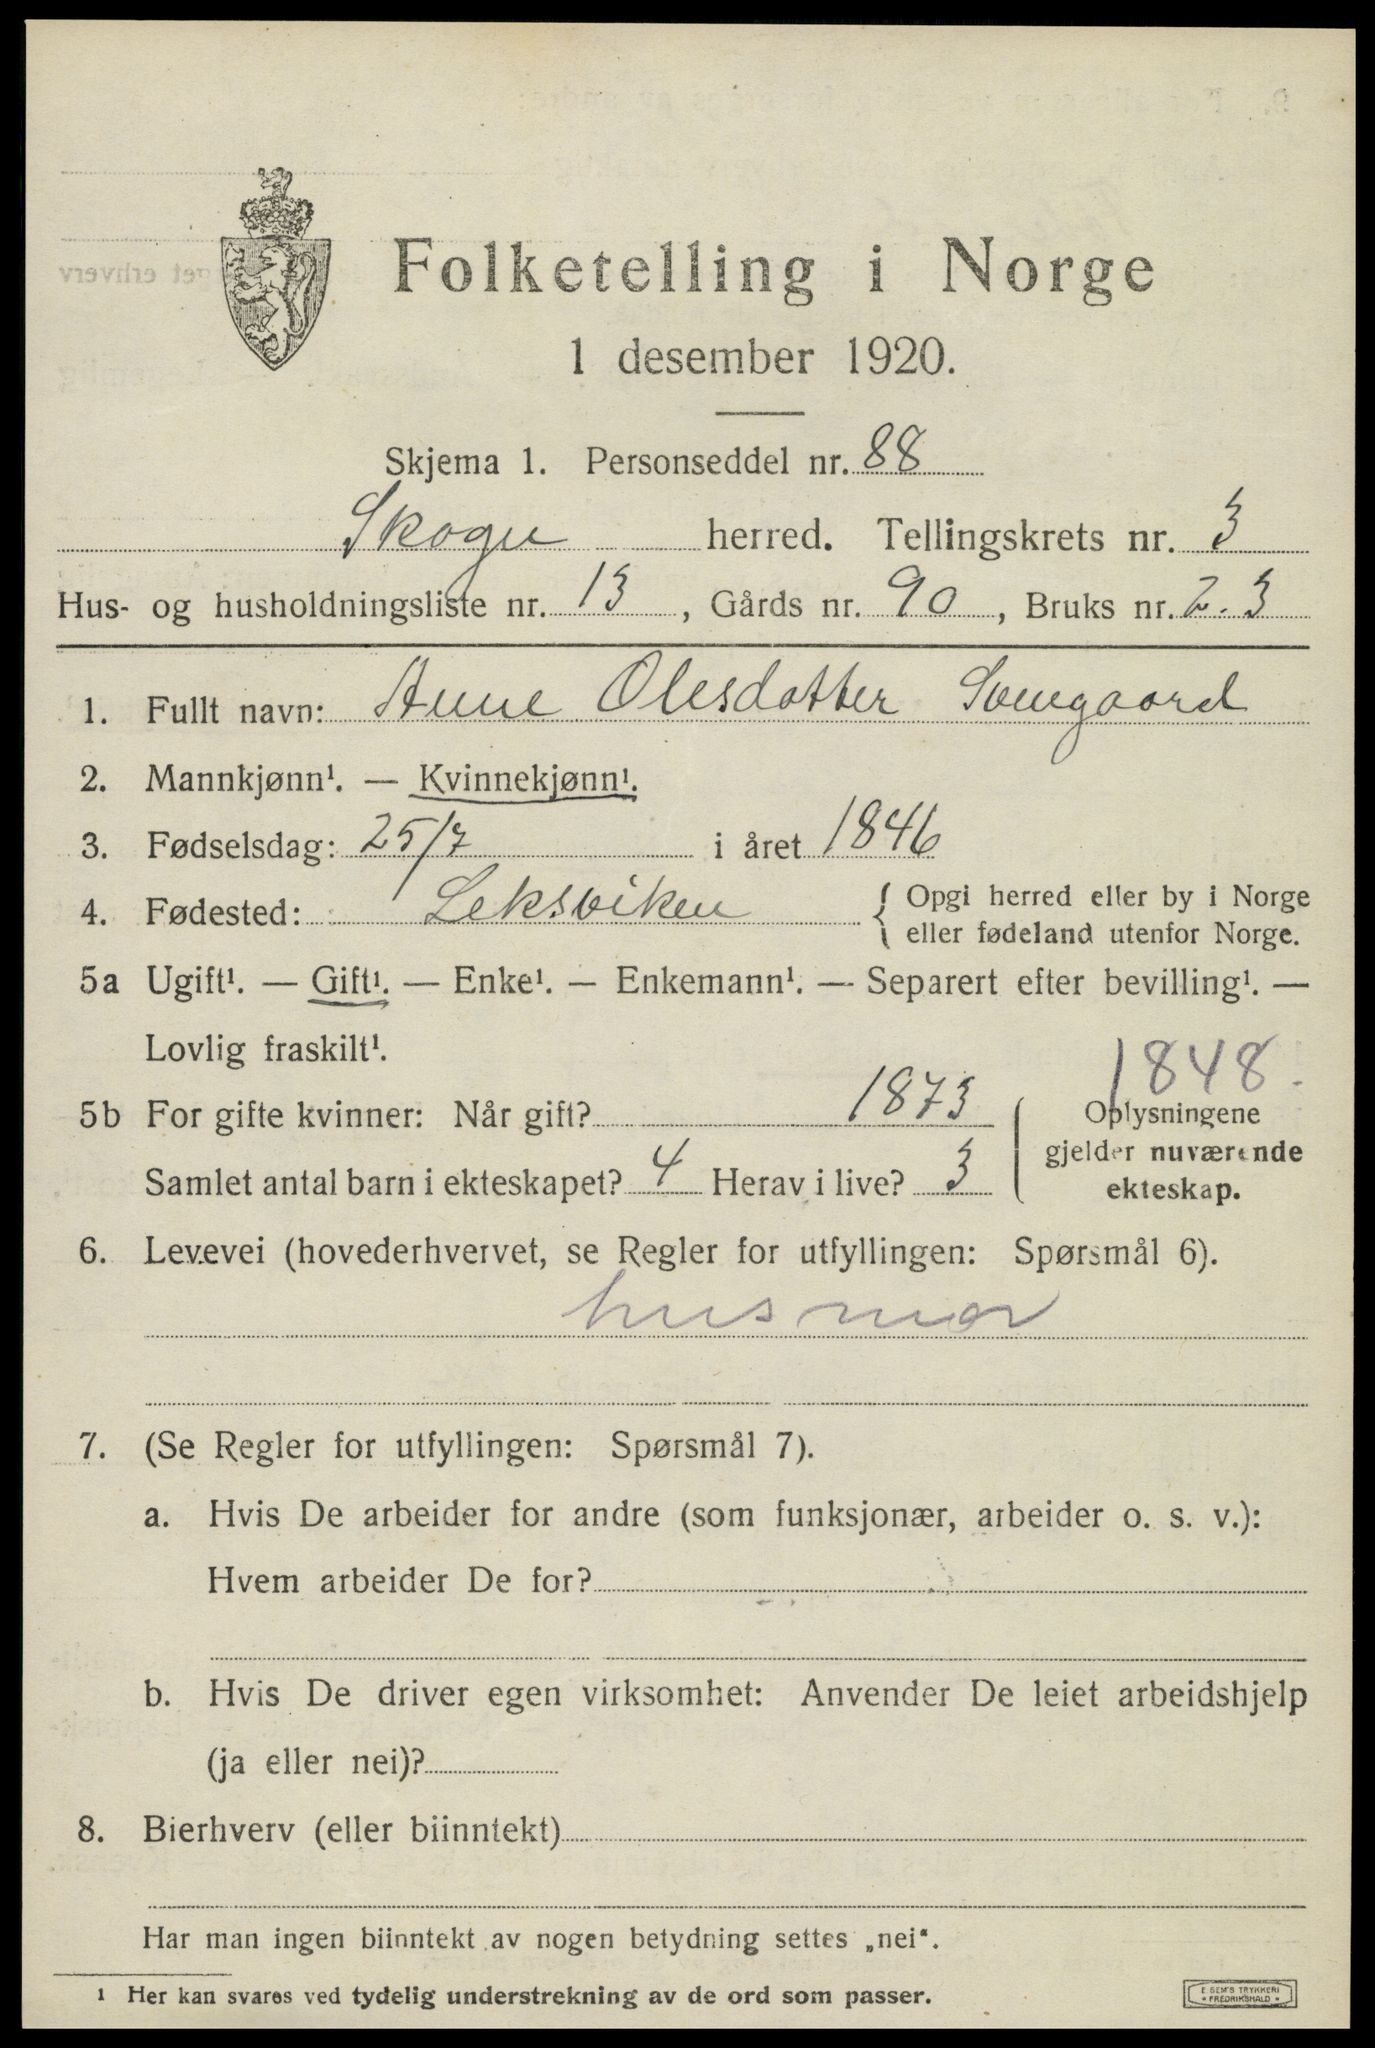 Folketelling i Norge
1 desember 1920.
Skjema 1. Personseddel nr. 88
Skogn herred. Tellingskrets nr. 3
Hus- og husholdningsliste nr. 13, Gårds nr. 90, Bruks nr. 2.3
1. Fullt navn: Anne Olesdatter Svengaard
2. Mannkjønn¹. — Kvinnekjønn¹.
3. Fødselsdag: 25/7 i året 1846
4. Fødested: Leksviken { Opgi herred eller by i Norge
eller fødeland utenfor Norge.
5a Ugift¹. — Gift¹. — Enke¹. — Enkemann¹. — Separert efter bevilling¹. —
Lovlig fraskilt¹.
1848.
5b For gifte kvinner: Når gift? 1873 Oplysningene
gjelder nuværende
Samlet antal barn i ekteskapet? 4 Herav i live? 3 ekteskap.
6. Levevei (hovederhvervet, se Regler for utfyllingen: Spørsmål 6).
husmor
7. (Se Regler for utfyllingen: Spørsmål 7).
a. Hvis De arbeider for andre (som funksjonær, arbeider o. s. v.):
Hvem arbeider De for?
b. Hvis De driver egen virksomhet: Anvender De leiet arbeidshjelp
(ja eller nei)?
8. Bierhverv (eller biinntekt)
Har man ingen biinntekt av nogen betydning settes „nei“.
1 Her kan svares ved tydelig understrekning av de ord som passer.
E SEM'S TRYKKERI
* FREDRIKSHALD *